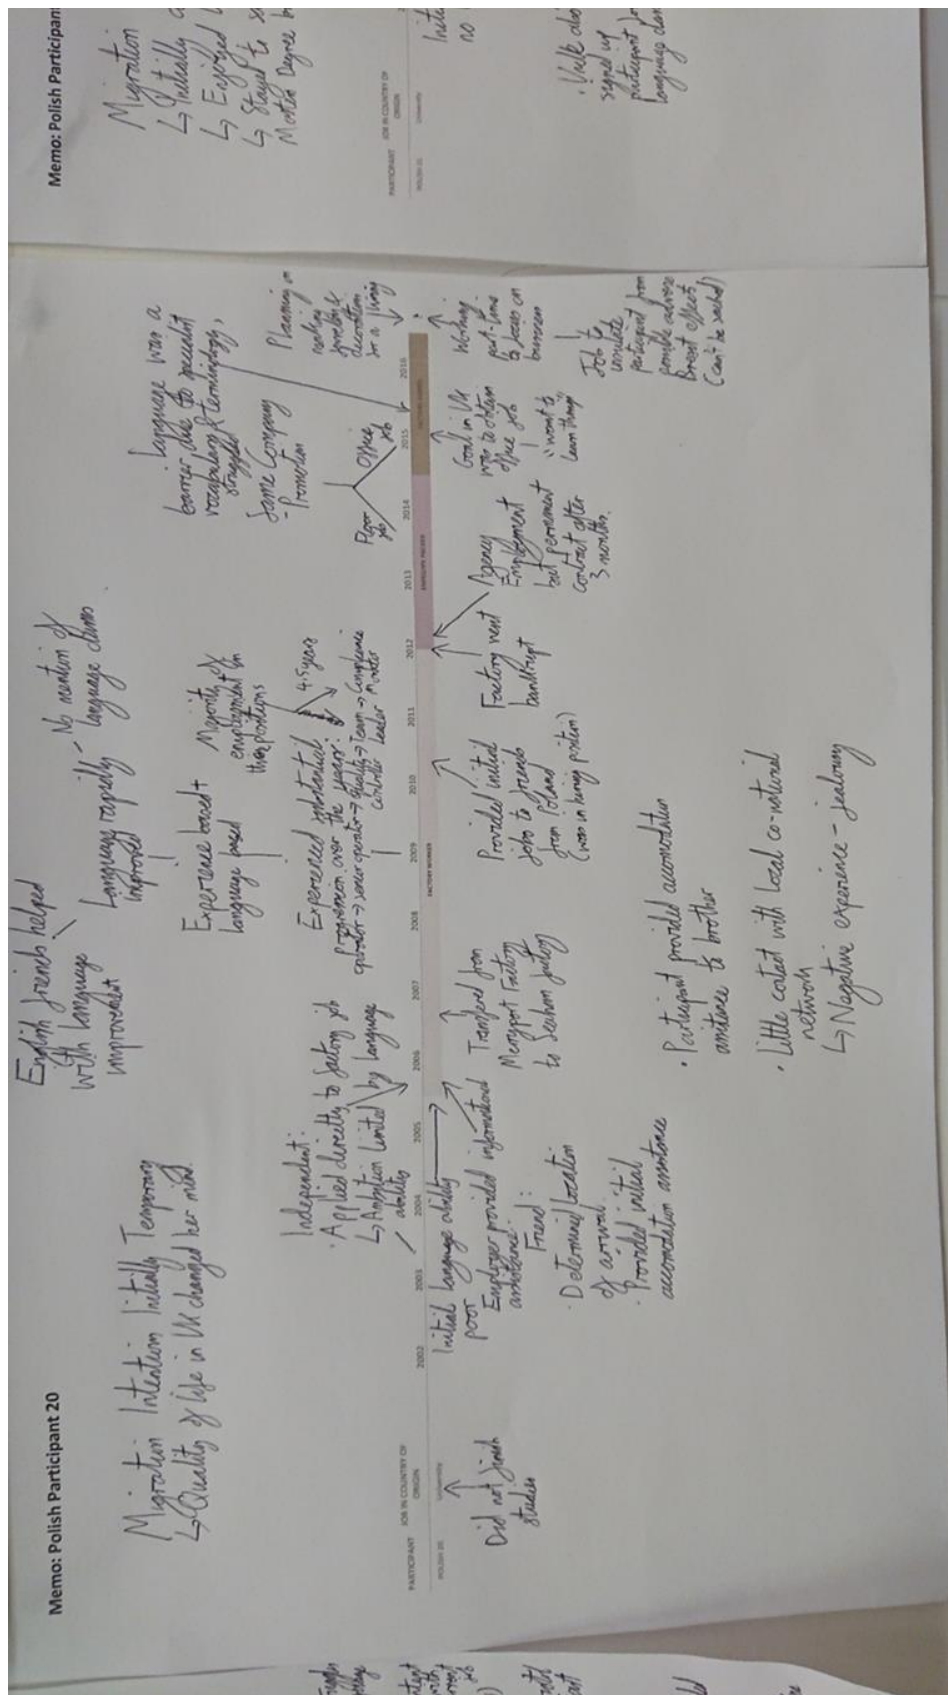 Memo: Polish Participant 20
Migration Intention Initially Temporary
↳ Quality of life in UK changed her mind.
English friends helped
with language
improvement
Language rapidly
improved
- No mention of
language classes
Experience based +
language based
Majority of
employment in
these positions
Independent:
· Applied directly to factory job
↳ Ambition limited by language
ability
Experienced substantial
progression over the years:
operator → senior operator → Quality → Team → Compliance
controller leader
4.5 years
Language was a
barrier due to specialist
vocabulary & terminology,
struggled
Same Company
- Promotion
Floor
job
Office
job
Planning on
making
decoration
for a living
PARTICIPANT
JOB IN COUNTRY OF
ORIGIN
2002
2003
2004
2005
2006
2007
2008
2009
2010
2011
2012
2013
2014
2015
2016
POLISH 20
University
FACTORY WORKER
ENVELOPE PACKER
Did not finish
studies
Initial language ability
poor
Employer provided informational
assistance
Friend:
· Determined location
of arrival
· Provided initial
accomodation assistance
Transferred from
Merryport Factory
to Seaham factory
Provided initial
jobs to friends
from Poland
(was in hiring position)
Factory went
bankrupt
Agency
Employment
but permanent
contract after
3 months.
Goal in UK
was to obtain
office job
"want to
learn things"
Working
part-time
to focus on
business
Job to
insulate
participant from
possible adverse
Brexit effects
(can't be sacked)
· Participant provided accomodation
assistance to brother
· Little contact with local co-national
network
↳ Negative experience - jealousy
Memo: Polish Participant
Migration
↳ Initially
↳ Enjoyed
↳ Stayed to
Master Degree
PARTICIPANT
JOB IN COUNTRY OF
ORIGIN
POLISH 21
University
no
signed up
participant
language